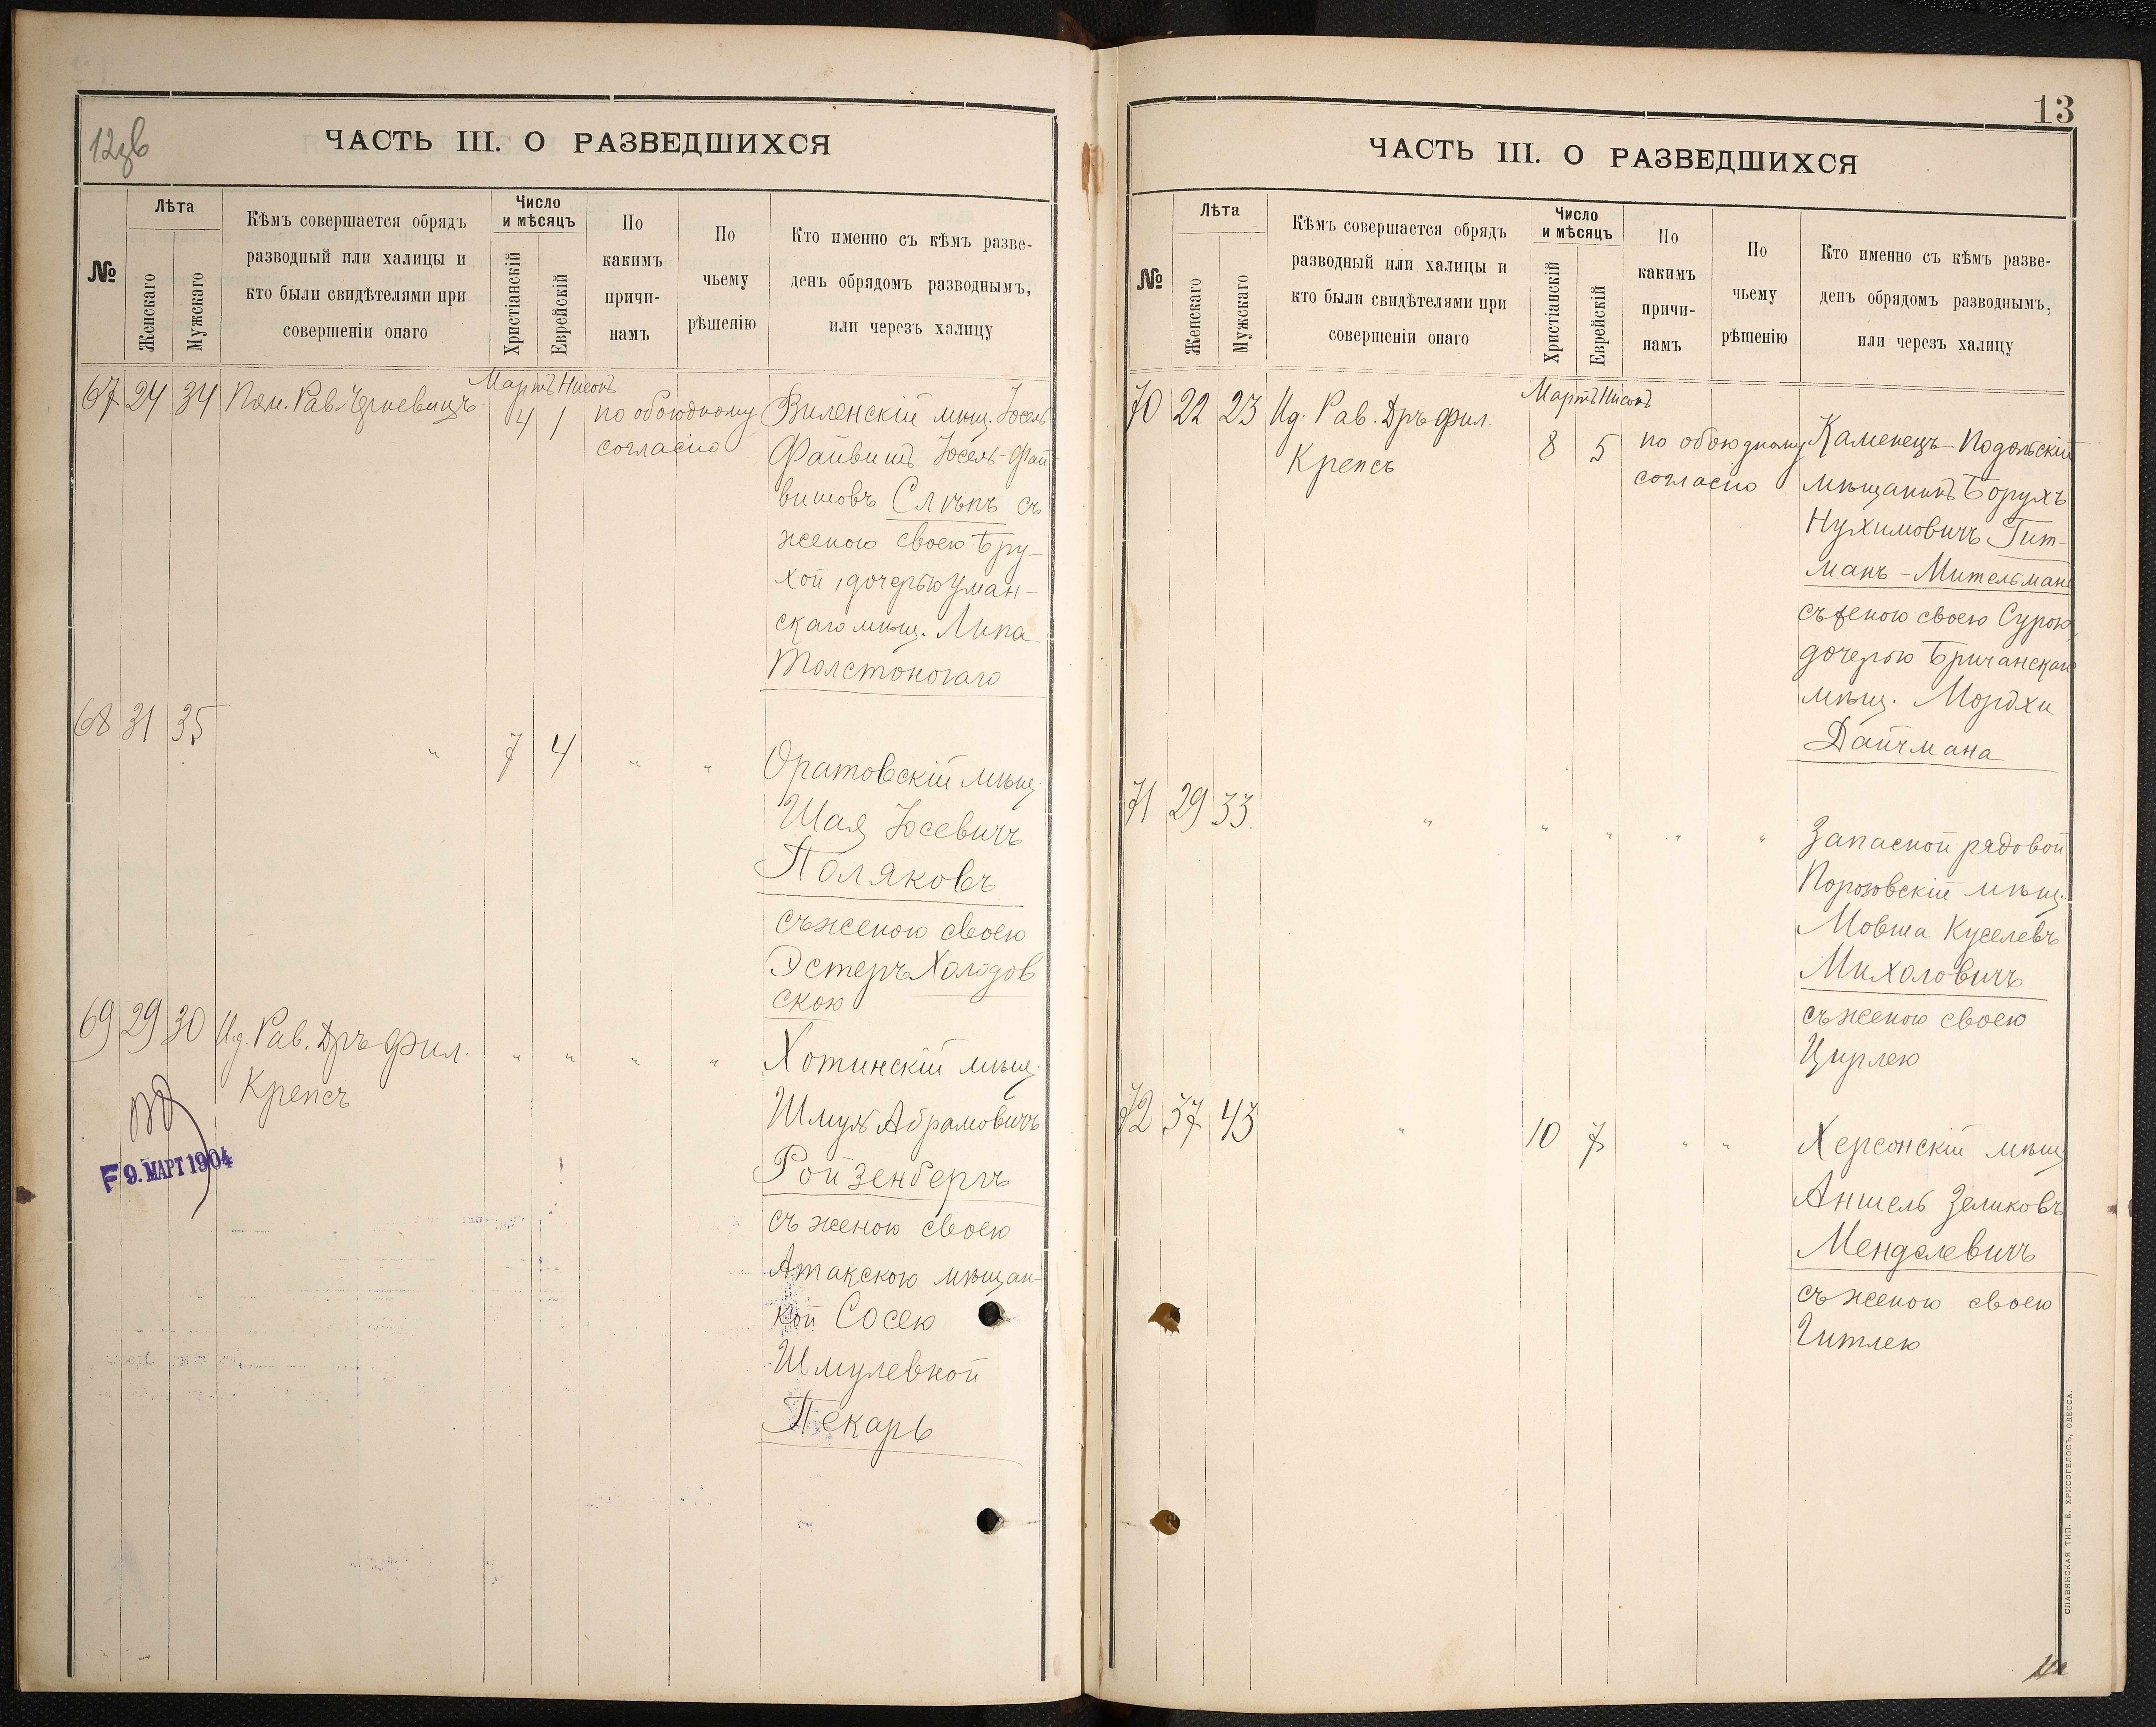 12зв
ЧАСТЬ III. О РАЗВЕДШИХСЯ
№
Лѣта
Женскаго
Мужскаго
Кѣмъ совершается обрядъ
разводный или халицы и
кто были свидѣтелями при
совершеніи онаго
Число
и мѣсяцъ
Христіанскій
Еврейскій
По
какимъ
причи-
намъ
По
чьему
рѣшенію
Кто именно съ кѣмъ разве-
денъ обрядомъ разводнымъ,
или черезъ халицу
Мартъ Нисонъ
67 24 34 Пом. Рав. 4 1 по обоюдному
согласію
Виленскій мѣщ. Іосель
Файвишъ Іосель-Фай
вишовъ Слѣпъ съ
женою своею Бру-
хой, дочерью Уман-
скаго мѣщ. Липа
Толстоногаго
68 31 35 " 7 4 " "
Оратовскій мѣщ.
Шая Іосевичъ
Поляковъ
съ женою своею
Эстеръ Холодов
скою
69 29 30 Ид. Рав. Дръ фил. " " " "
Крепсъ
Хотинскій мѣщ.
Шмуль Абрамовичъ
Ройзенбергъ
съ женою своею
Атакскою мѣщан-
кой Сосею
Шмулевной
Пекарь
9. МАРТ 1904
13
ЧАСТЬ III. О РАЗВЕДШИХСЯ
№
Лѣта
Женскаго
Мужскаго
Кѣмъ совершается обрядъ
разводный или халицы и
кто были свидѣтелями при
совершеніи онаго
Число
и мѣсяцъ
Христіанскій
Еврейскій
По
какимъ
причи-
намъ
По
чьему
рѣшенію
Кто именно съ кѣмъ разве-
денъ обрядомъ разводнымъ,
или черезъ халицу
Мартъ Нисонъ
70 22 23 Ид. Рав. Дръ фил. 8 5 по обоюдному
Крепсъ
согласію
Каменецъ-Подольскій
мѣщанинъ Борухъ
Нухимовичъ Гит-
манъ-Мительманъ
съ женою своею Сурою
дочерью Бричанскаго
мѣщ. Мордхи
Дайчмана
71 29 33 " " " " "
Запасной рядовой
Порозовскій мѣщ.
Мовша Куселевъ
Михоловичъ
съ женою своею
Цирлею
72 37 43 " 10 7 " "
Херсонскій мѣщ
Аншель Зеликовъ
Менделевичъ
съ женою своею
Гитлею
СЛАВЯНСКАЯ ТИП. Е. ХРИСОГЕЛОСЪ, ОДЕССА.